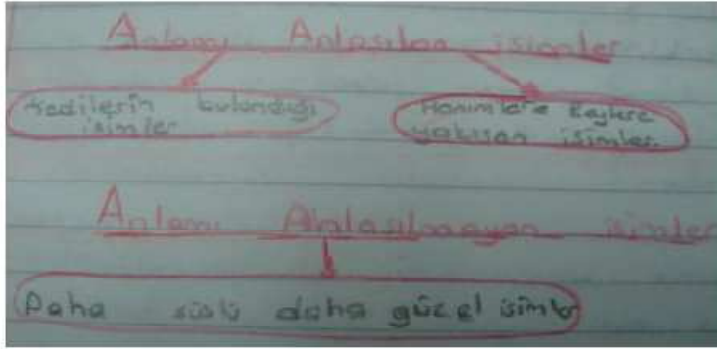 Anlamı Anlaşılan isimler
Kedilerin bulunduğu
isimler
Hanımlara Beylere
yakışan isimler.
Anlamı Anlaşılmayan isimler
Daha süslü daha güzel isimler